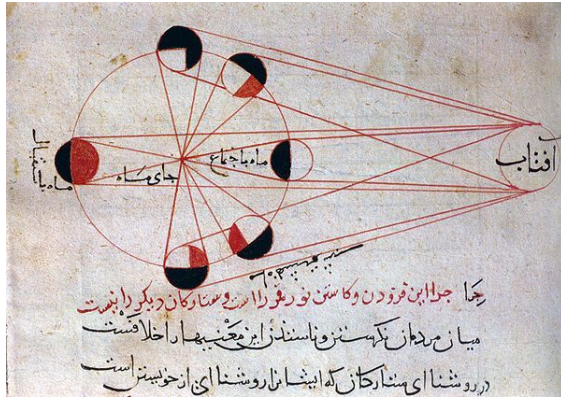 آفتاب
ماه باجتماع
جای ماه
ماه باستقبال
چرا این فزودن و کاستن نور قمر راست و ستارگان دیگر را نیست
میان مردمان نگرستن و ناسندن این معنیها را خلافست
در روشنا ای ستارکان که ایشانرا روشنا ای از خویشتن است